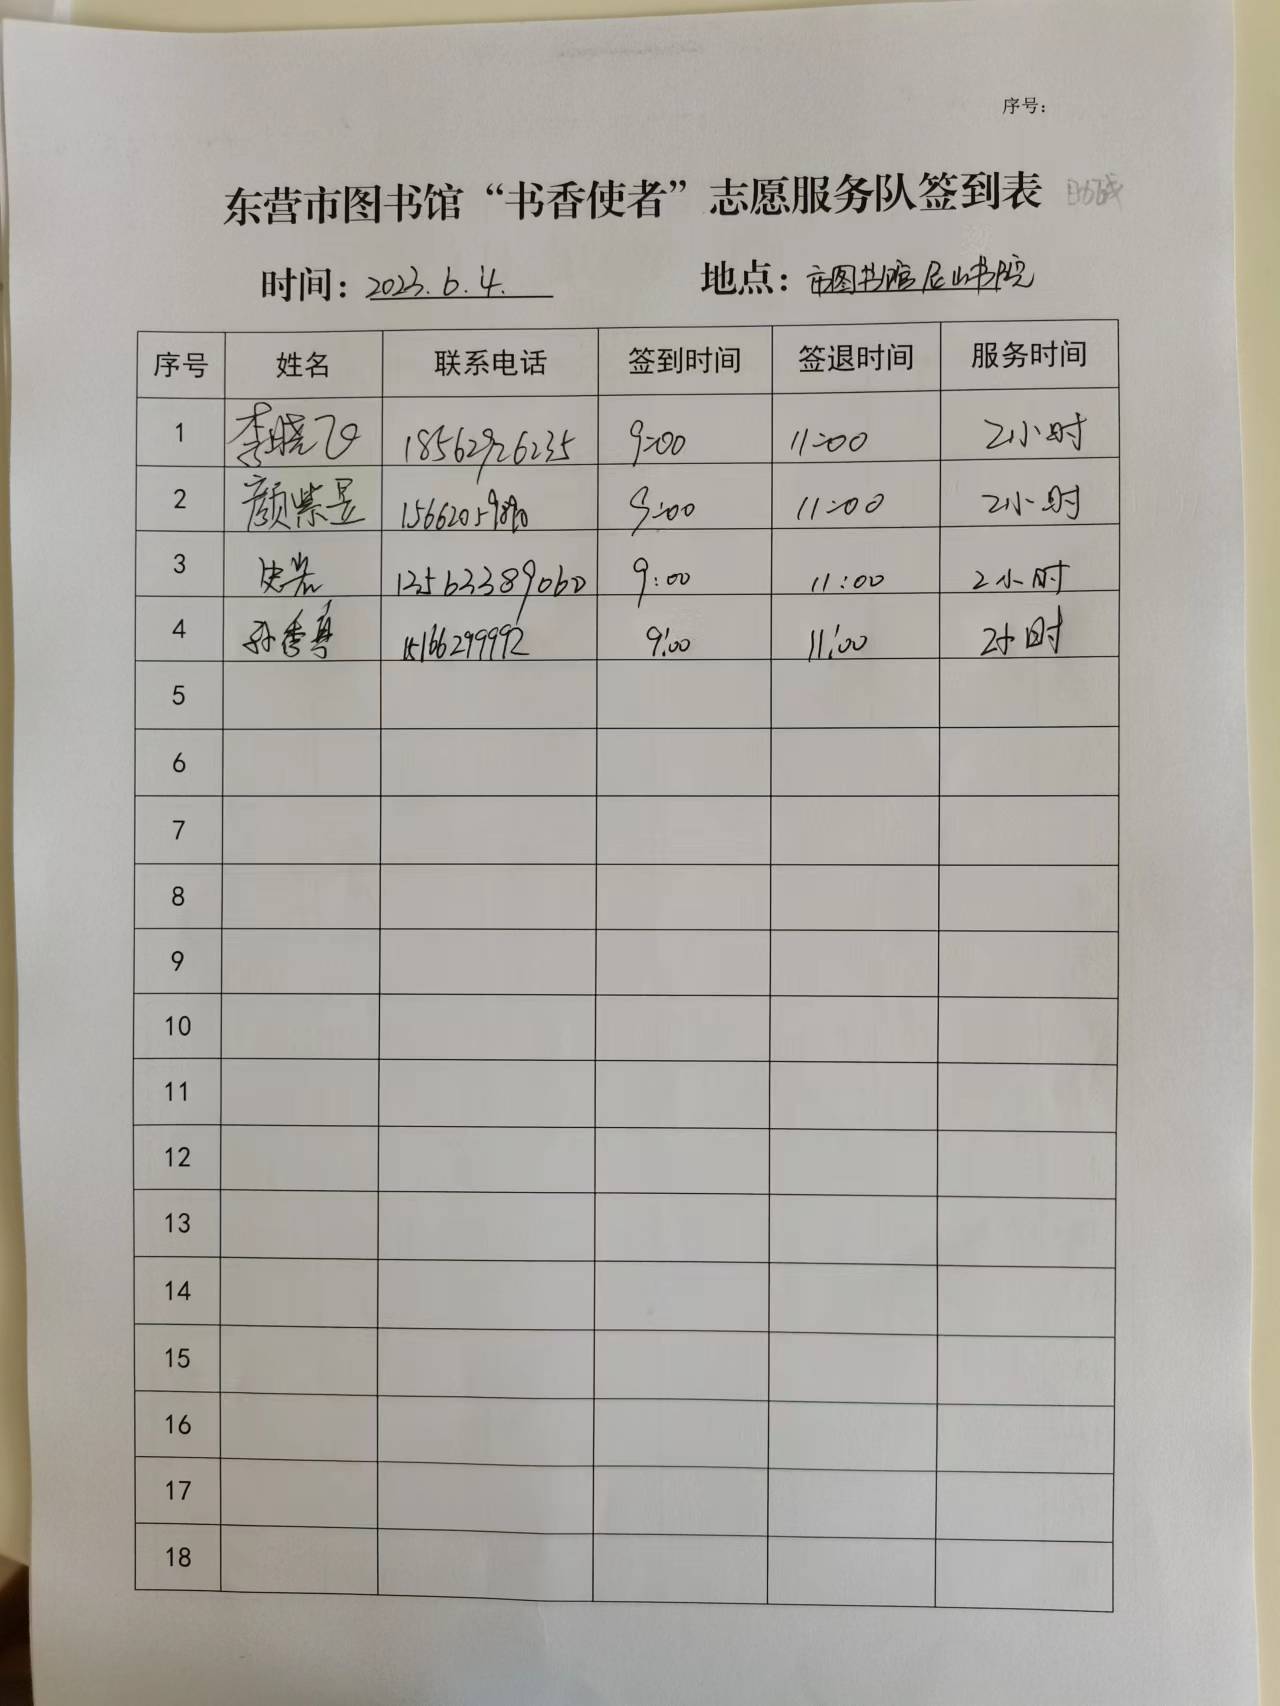 序号：
东营市图书馆“书香使者”志愿服务队签到表
时间：2023.6.4. 地点：市图书馆尼山书院
序号 姓名 联系电话 签到时间 签退时间 服务时间
1 李晓飞 18562926235 9:00 11:00 2小时
2 颜紫昱 9:00 11:00 2小时
3 9:00 11:00 2小时
4 15166299992 9:00 11:00 2小时
5
6
7
8
9
10
11
12
13
14
15
16
17
18